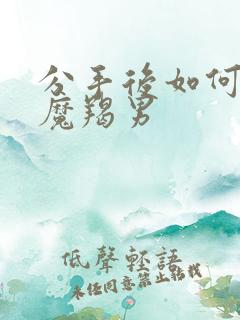 分手後如何
魔羯男
低聲輕語
未經同意禁止轉載